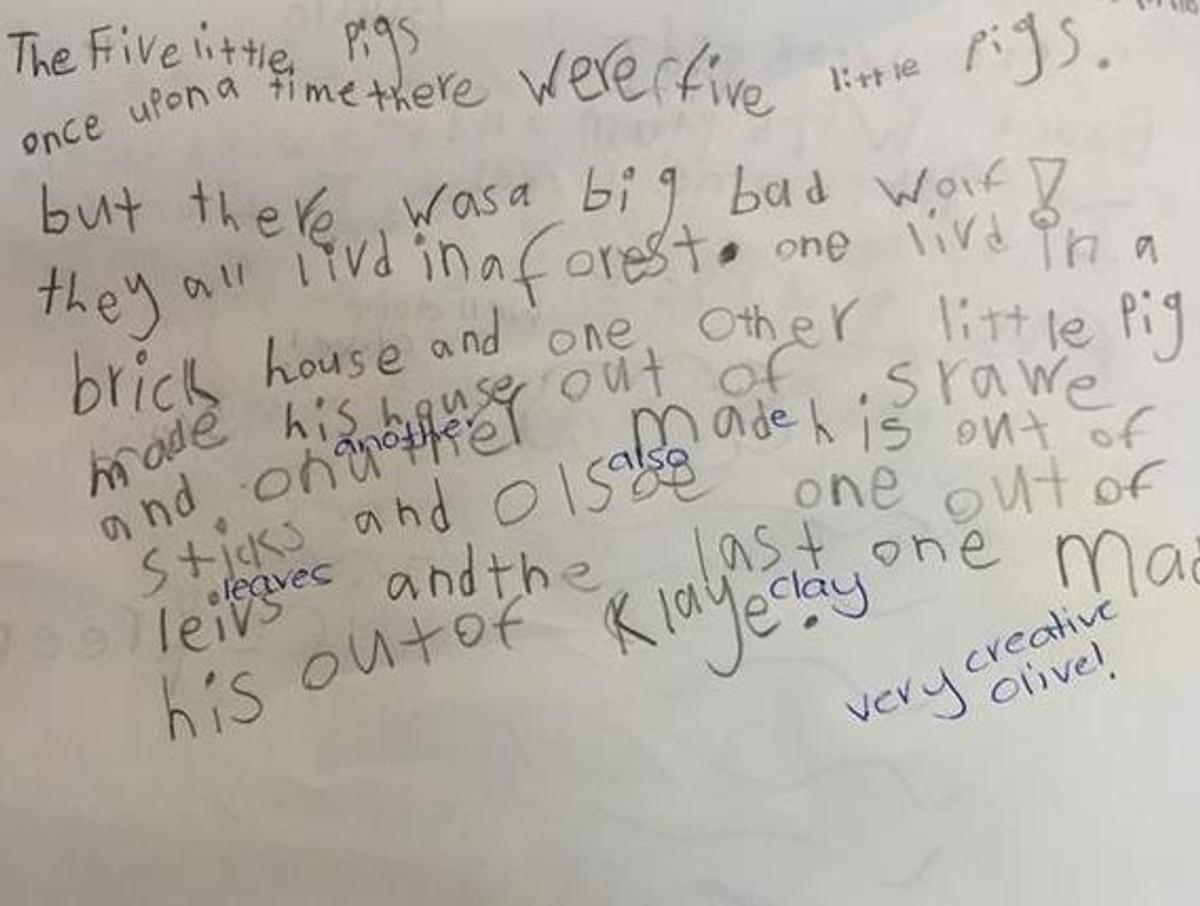 The Five little Pigs
once upon a time there were five little Pigs.
but there was a big bad wolf!
they all livd in a forest. one livd in a
brick house and one other little Pig
made his house out of srawe
and onuther another made his out of
sticks and olsoe also one out of
leivs leaves and the last one Mad
his out of Klaye. clay
very creative
olive!